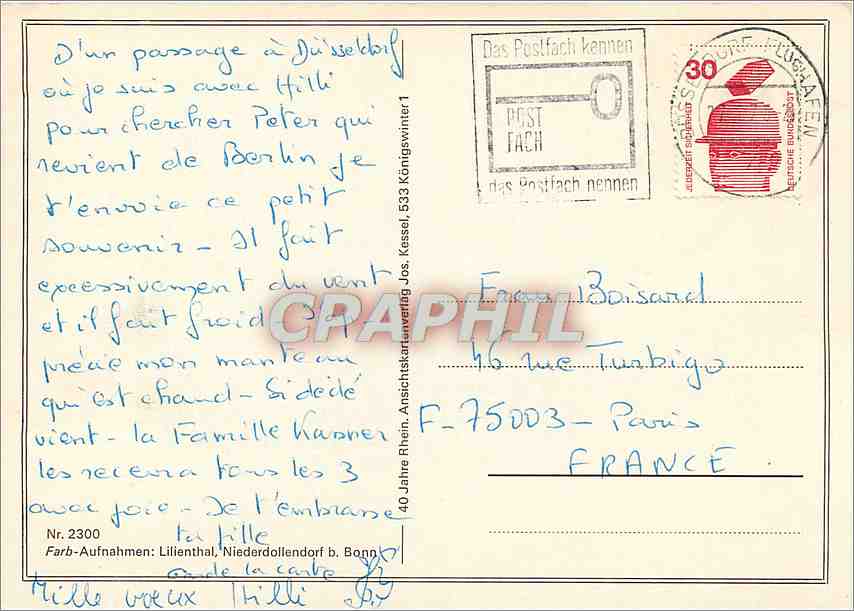 D'un passage à Düsseldorf
où je suis avec Hilli
pour chercher Peter qui
revient de Berlin je
t'envoie ce petit
souvenir - Il fait
excessivement du vent
et il fait froid - J'ap-
précie mon manteau
qu'est chaud - Si dédé
vient - la Famille Kasner
les recevra tous les 3
avec joie - Je t'embrasse
ta fille
Nr. 2300
Farb-Aufnahmen: Lilienthal, Niederdollendorf b. Bonn
la carte
Mille vœux Hilli
40 Jahre Rhein. Ansichtskartenverlag Jos. Kessel, 533 Königswinter 1
Das Postfach kennen
POST
FACH
das Postfach nennen
30
JEDERZEIT SICHERHEIT
DEUTSCHE BUNDESPOST
DÜSSELDORF FLUGHAFEN
CPAPHIL
Frau Boisard
46 rue Turbigo
F-75003 - Paris
FRANCE